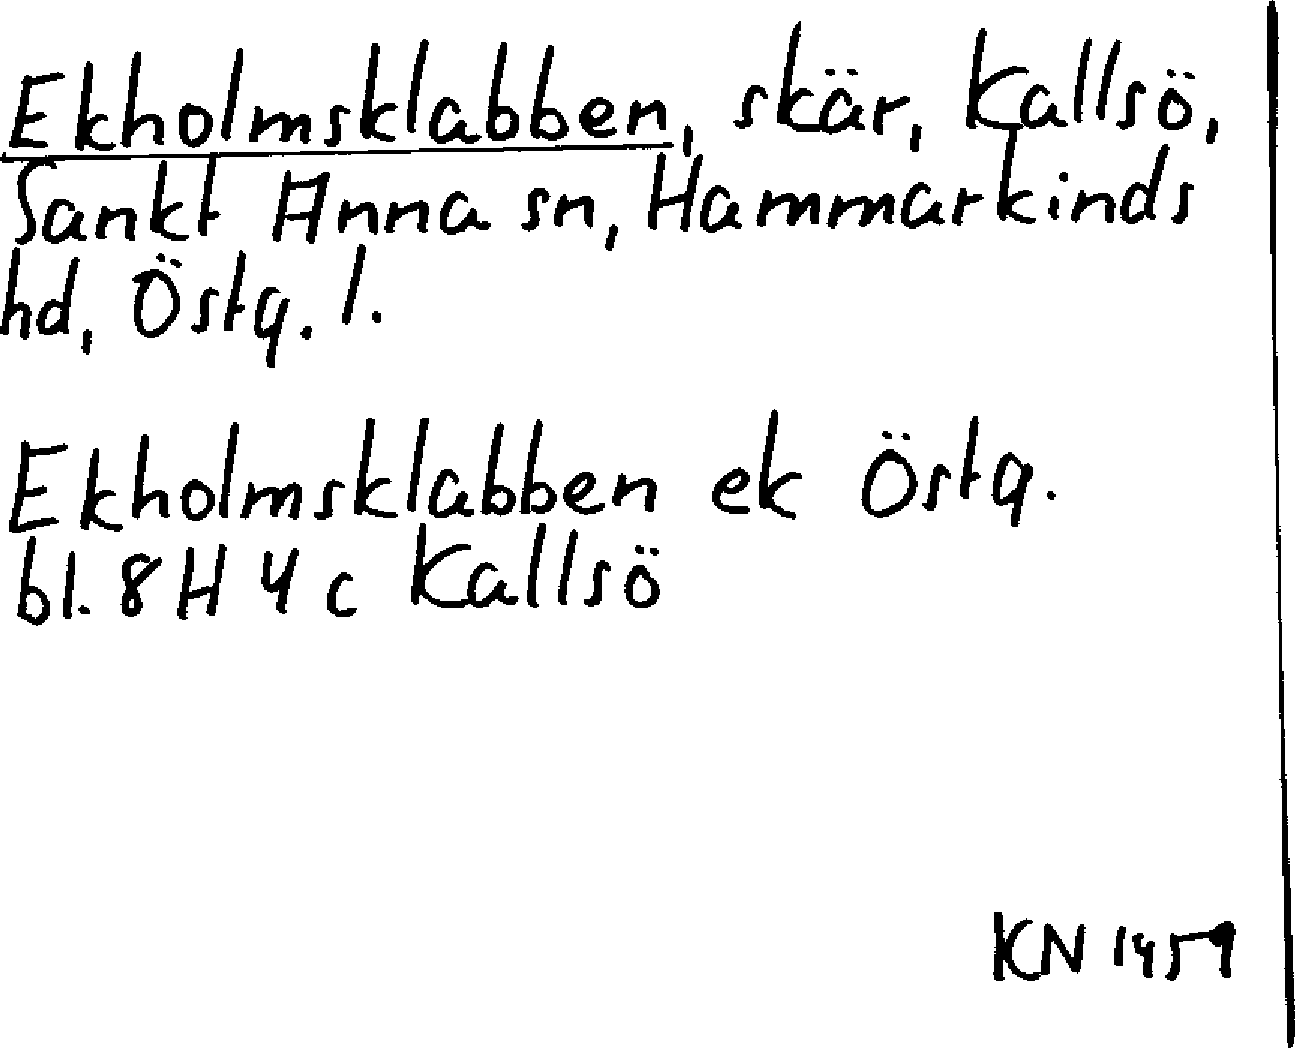 Ekholmsklabben, skär, Kallsö,
Sankt Anna sn, Hammarkinds
hd, Östg. l.
Ekholmsklabben ek Östg.
bl. 8H 4c Kallsö
KN 1459